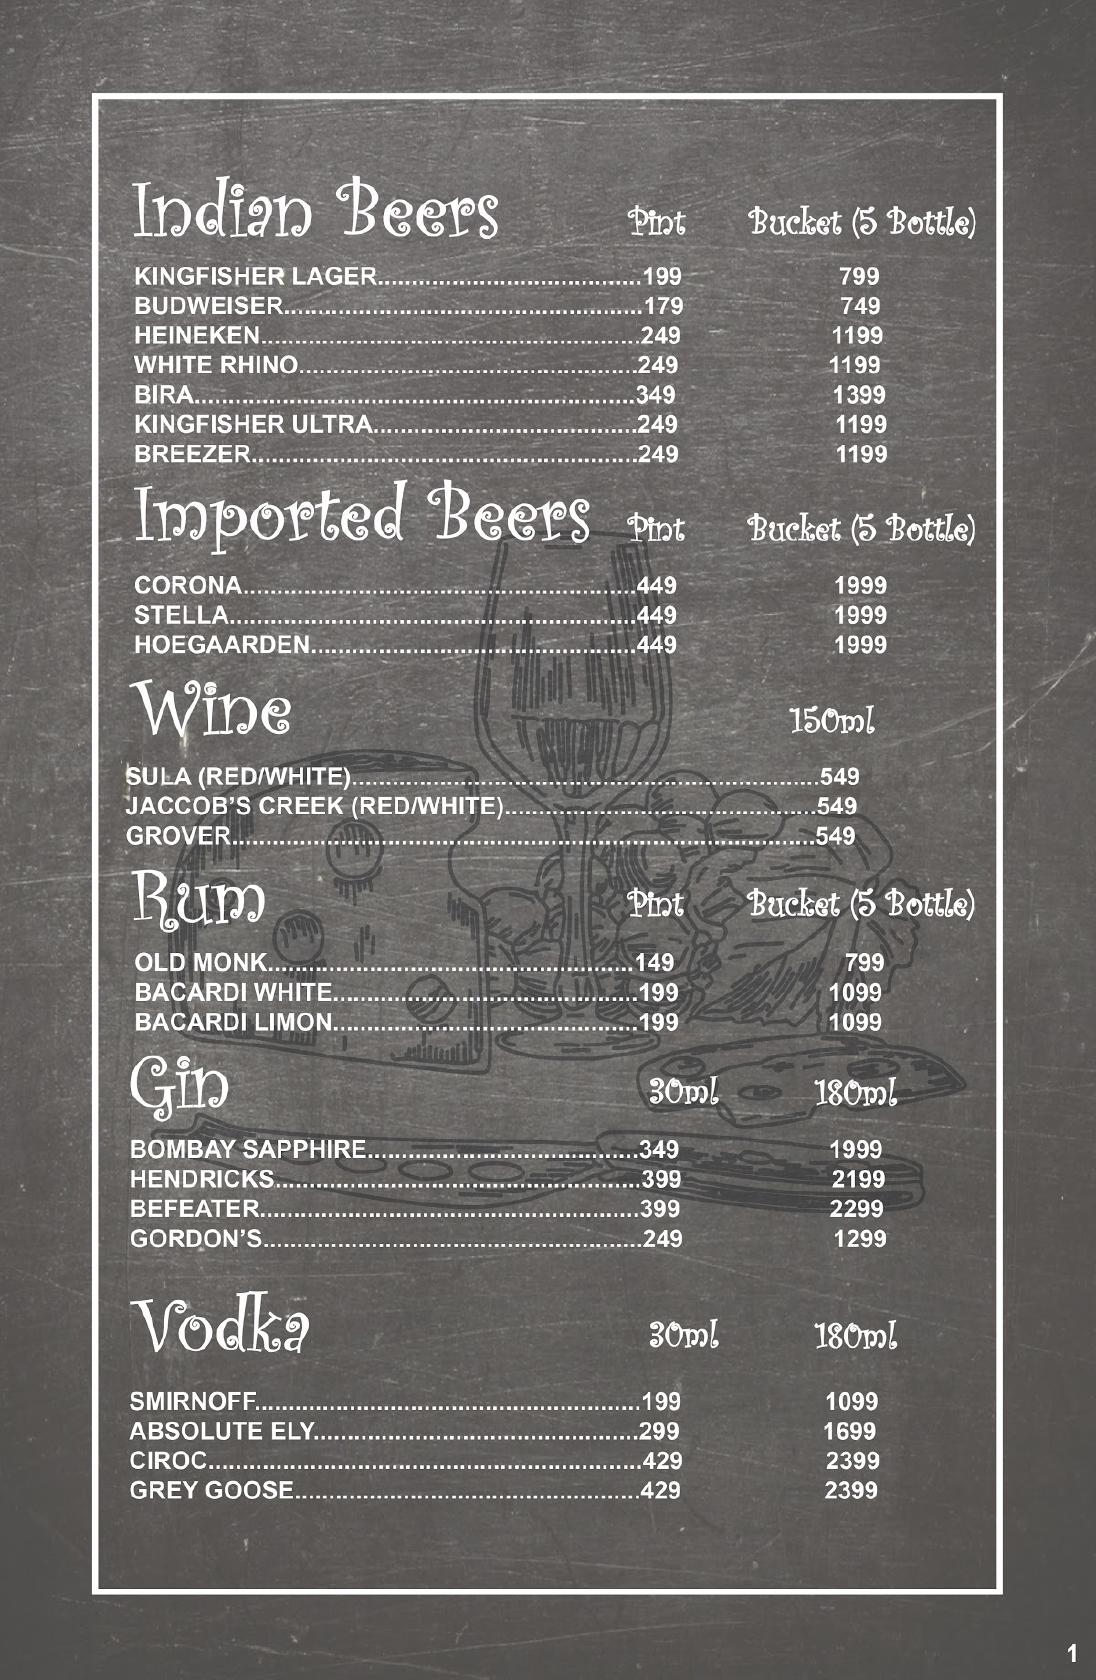 Indian Beers Pint Bucket (5 Bottle)
KINGFISHER LAGER.......................................199 799
BUDWEISER.....................................................179 749
HEINEKEN........................................................249 1199
WHITE RHINO..................................................249 1199
BIRA.................................................................349 1399
KINGFISHER ULTRA.......................................249 1199
BREEZER.........................................................249 1199
Imported Beers Pint Bucket (5 Bottle)
CORONA..........................................................449 1999
STELLA............................................................449 1999
HOEGAARDEN................................................449 1999
Wine 150ml
SULA (RED/WHITE).....................................................................549
JACCOB’S CREEK (RED/WHITE)..............................................549
GROVER......................................................................................549
Rum Pint Bucket (5 Bottle)
OLD MONK......................................................149 799
BACARDI WHITE.............................................199 1099
BACARDI LIMON.............................................199 1099
Gin 30ml 180ml
BOMBAY SAPPHIRE........................................349 1999
HENDRICKS......................................................399 2199
BEFEATER........................................................399 2299
GORDON’S........................................................249 1299
Vodka 30ml 180ml
SMIRNOFF.........................................................199 1099
ABSOLUTE ELY................................................299 1699
CIROC................................................................429 2399
GREY GOOSE...................................................429 2399
1